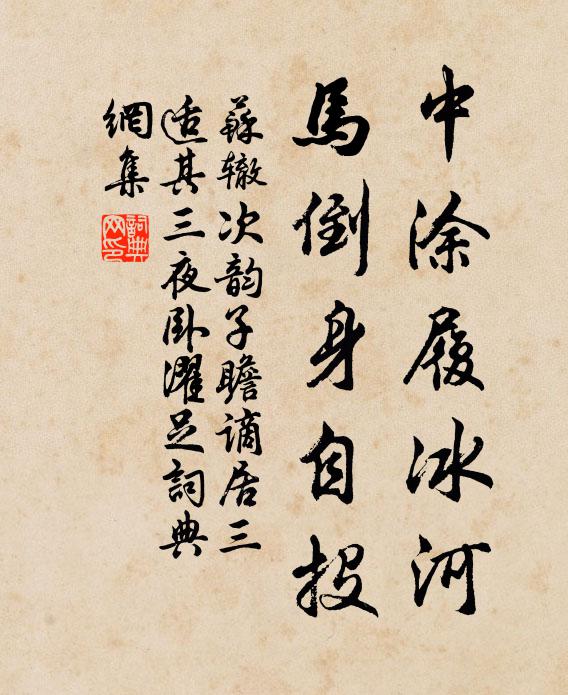 中涂履冰河
馬倒身自投
蘇辙次韵子瞻謫居三
适其三夜卧濯足詞典
網集
詞典网印